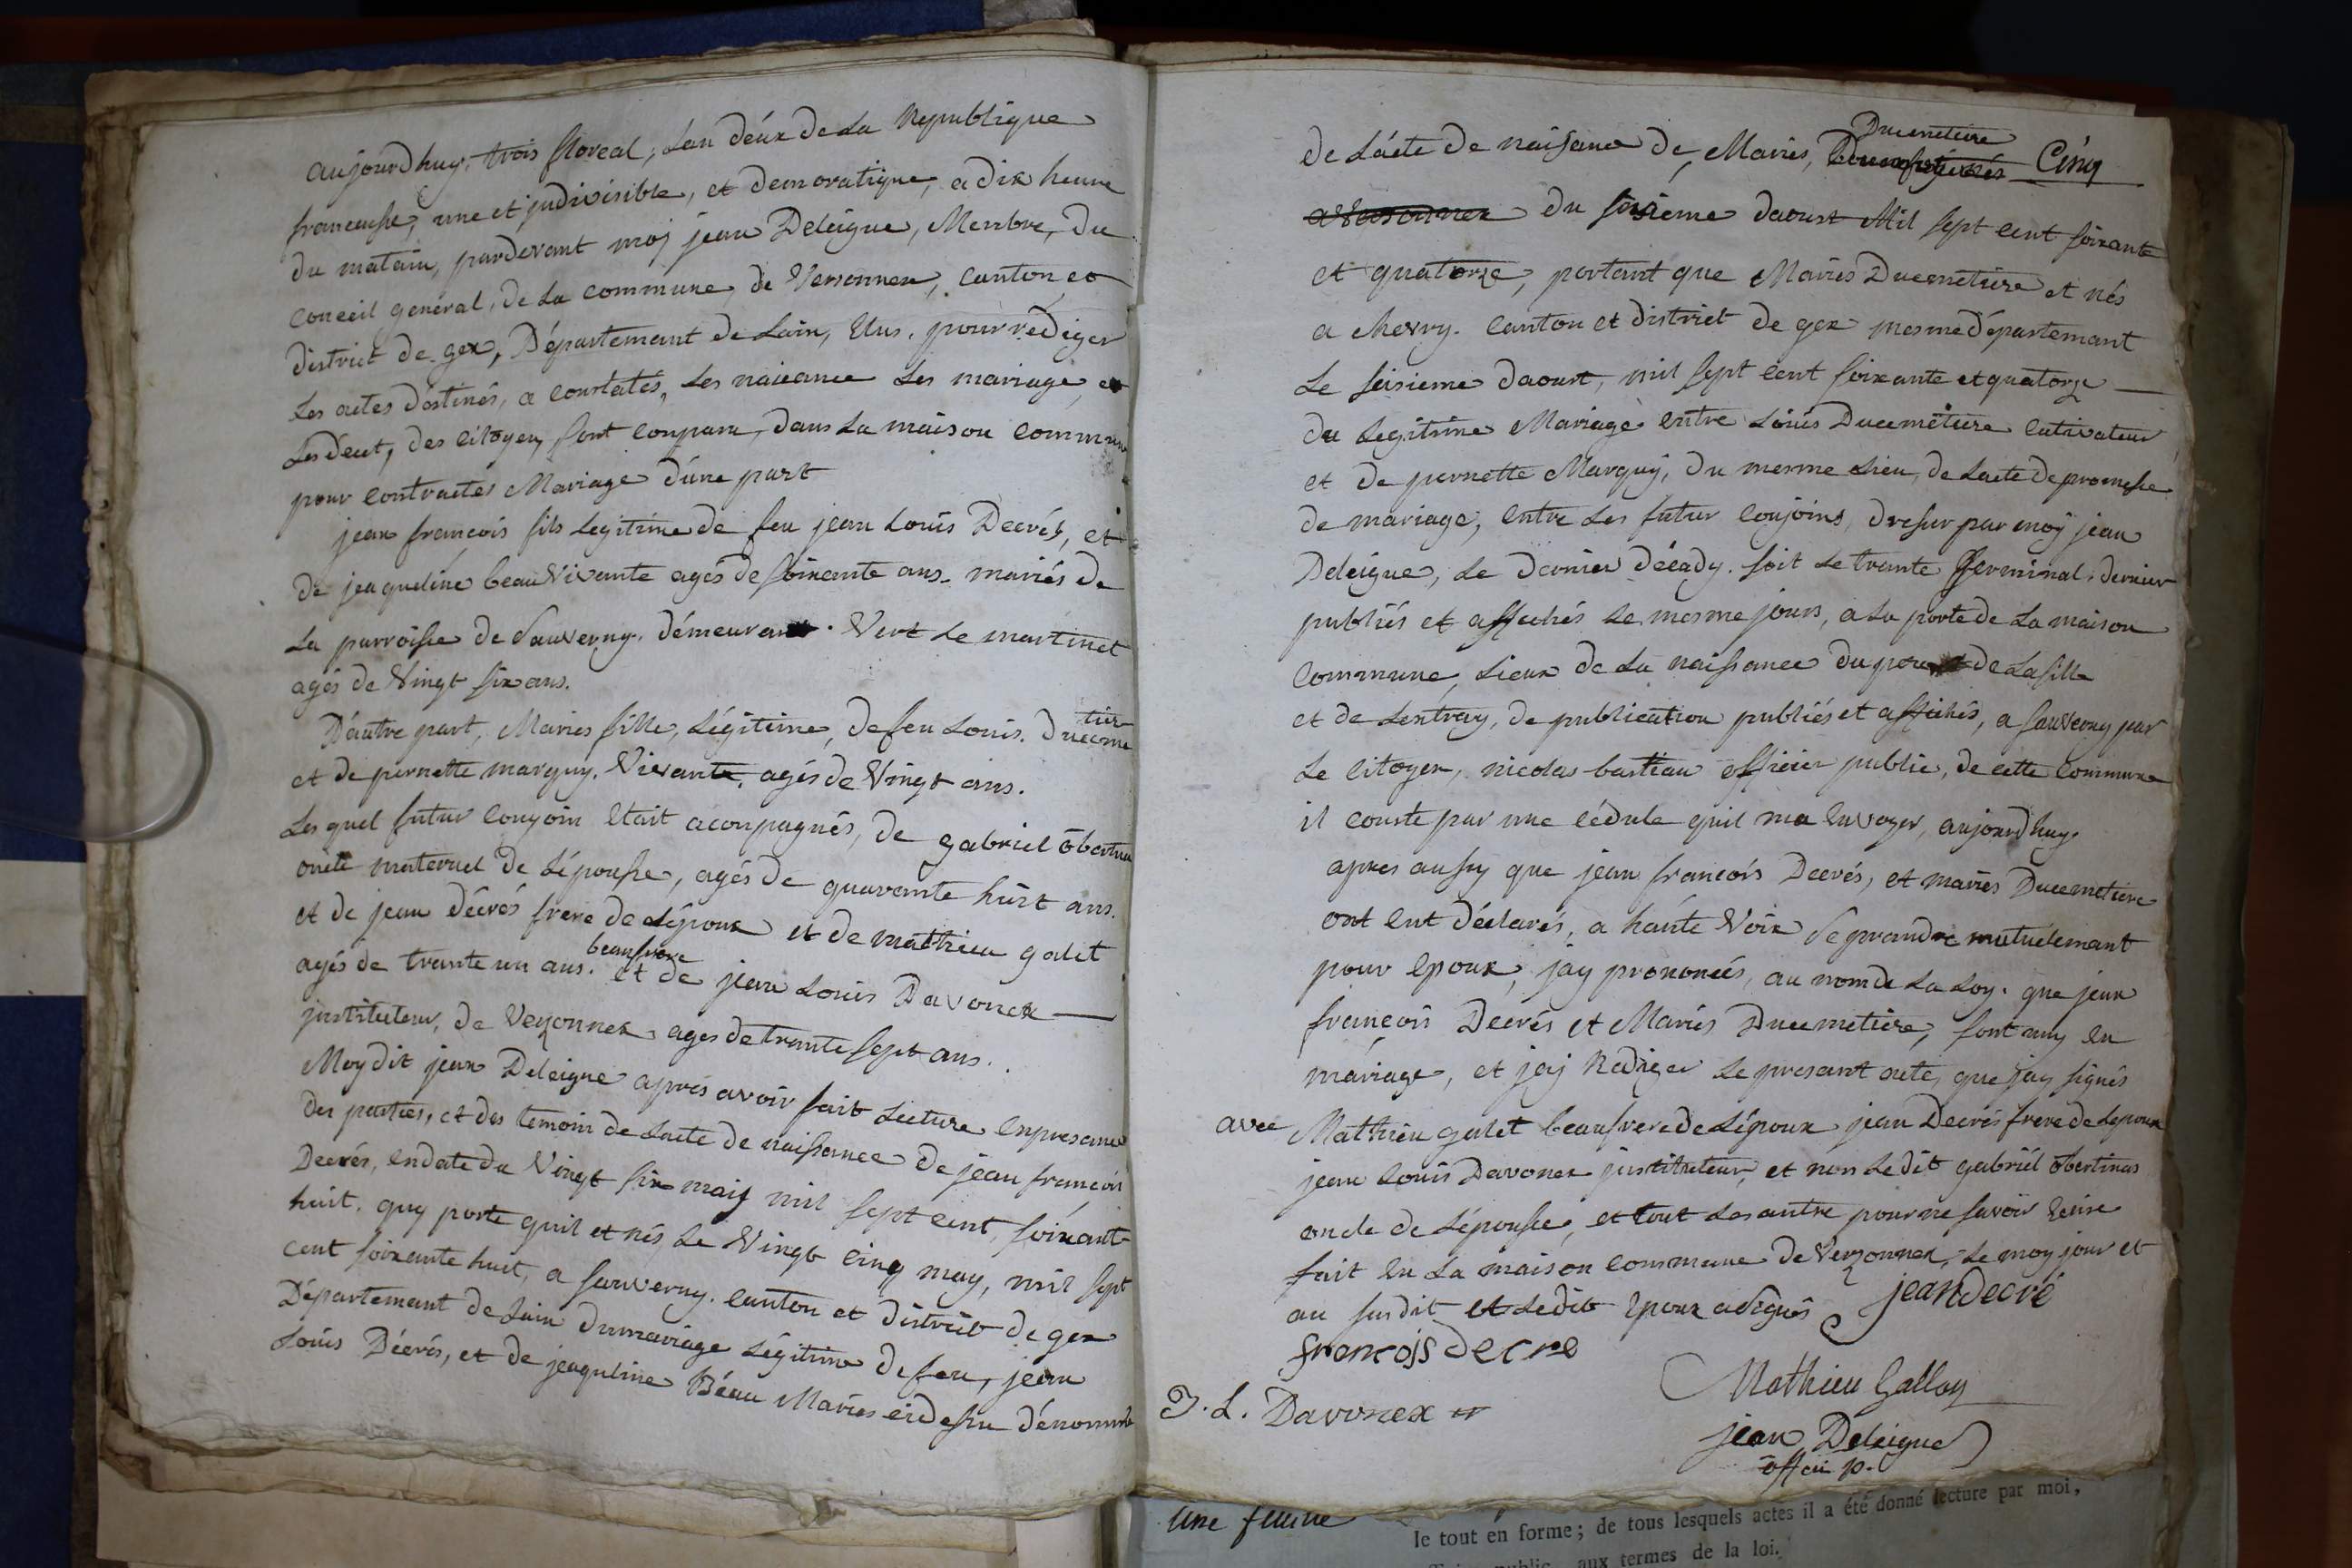 aujourdhuy, trois floreal, Lan déux de La Republique
francaise, une et judivisible, et demoratique, a dix heure
du matain, pardevant moj jean Deleigne, Membre, du
conceil general, de La commune, de Versonnex, canton et
district de gex, Département de Lain, Elus. pour rediger
Les actes déstinés, a constatés, Les naiceance Les mariage, et
Les deut, des citoyen, sont conparu, dans La maison commune
pour contractés Mariage dúne part
jean francois fils Legitime de feu jean Louis Decrés, et
de jeaqueline beau Vivante agés de soixante ans. mariés de
La parroisse de Sauverny. démeurant. Vert Le martinet
agés de Vingt six ans.
D'áutre part, Maries fille, Légitime, de feu Louis. Ducimetier
et de pernette marguy. Vivante, agés de Vingt ans.
Les quel futur conjoin Etait aconpagnés, de gabriel öbertin
oncle maternel de Lépouse, agés de quarante huit ans.
et de jean décrés frere de Lépoux et de mathieu galet
beaufrere
agés de trante un ans. et de jean Louis Davonex
justituteur, de Verzonnex ages de trante sept ans.
Moy dit jean Deleigne aprés avoir fait Lecture Enpresance
des parties, et des temoin de Lacte de naissance de jean francois
Decrés, en date du Vingt six maij mil sept cent, soixante
huit, quy porte quil et nés Le Vingt cinq may, mil sept
cent soixante huit, a sauverny. canton et district de gex
Département de Lain du mariage Légitime de feu, jean
Louis Décrés, et de jeaquline Béau Maries cidessu dénommé
de Lácte de naisance de, Maries, Ducimetiere Cinq
a Versonnex du sixième daoust Mil sept cent soixante
et quatorze, portant que Maries Ducimetiere et nés
a chevry. canton et district de gex mesme départemant
Le seisieme daoust, mil sept cent soixante et quatorze
du Legitime Mariage entre Louis Ducimetiere cutivateur
et de pernette Marguy, du mesme Lieu, de Lacte de promesse
de mariage, entre Les futur conjoins, dresur par moy jean
Deleigne, Le dernier décady. soit Le trante Germinal. dernier
publiés et affichés Le mesme jours, a La porte de La maison
commune, Lieux de La naissance du pere de La fille
et de Lextray, de publication publiés et affichés, a sauverny par
Le citoyen, nicolas bastian officier public, de cette commune
il conste par une cédule quil ma Envoyer, aujourdhuy.
apres aussy que jean francois Decrés, et maries Ducimetiere
ont Ent déclarés, a háute Voix se prandre mutuélemant
pour Epoux, jay prononcés, au nom de La Loy. que jean
francois Decrés et Maries Ducimetiere, sont uny En
máriage, et jaj Rediger Le presant acte, que jay signés
avec Mathieu galet beaufrere de Lépoux jean Decrés frere de Lepoux
jean Louis Davonex justituteur, et non Le dit gabriél öbertin
oncle de Lépouse, et tout Les autre pour ne savoir Ecire
fait En La maison commune de Verzonnex, Le moy jour et
au susdit et Ledit Epoux a signés jean decré
francois decre
Mathieu Gallay
J. L. Davonex
jean Deleigne
offici p.
Une feuille
le tout en forme ; de tous lesquels actes il a été donné lecture par moi,
public aux termes de la loi.